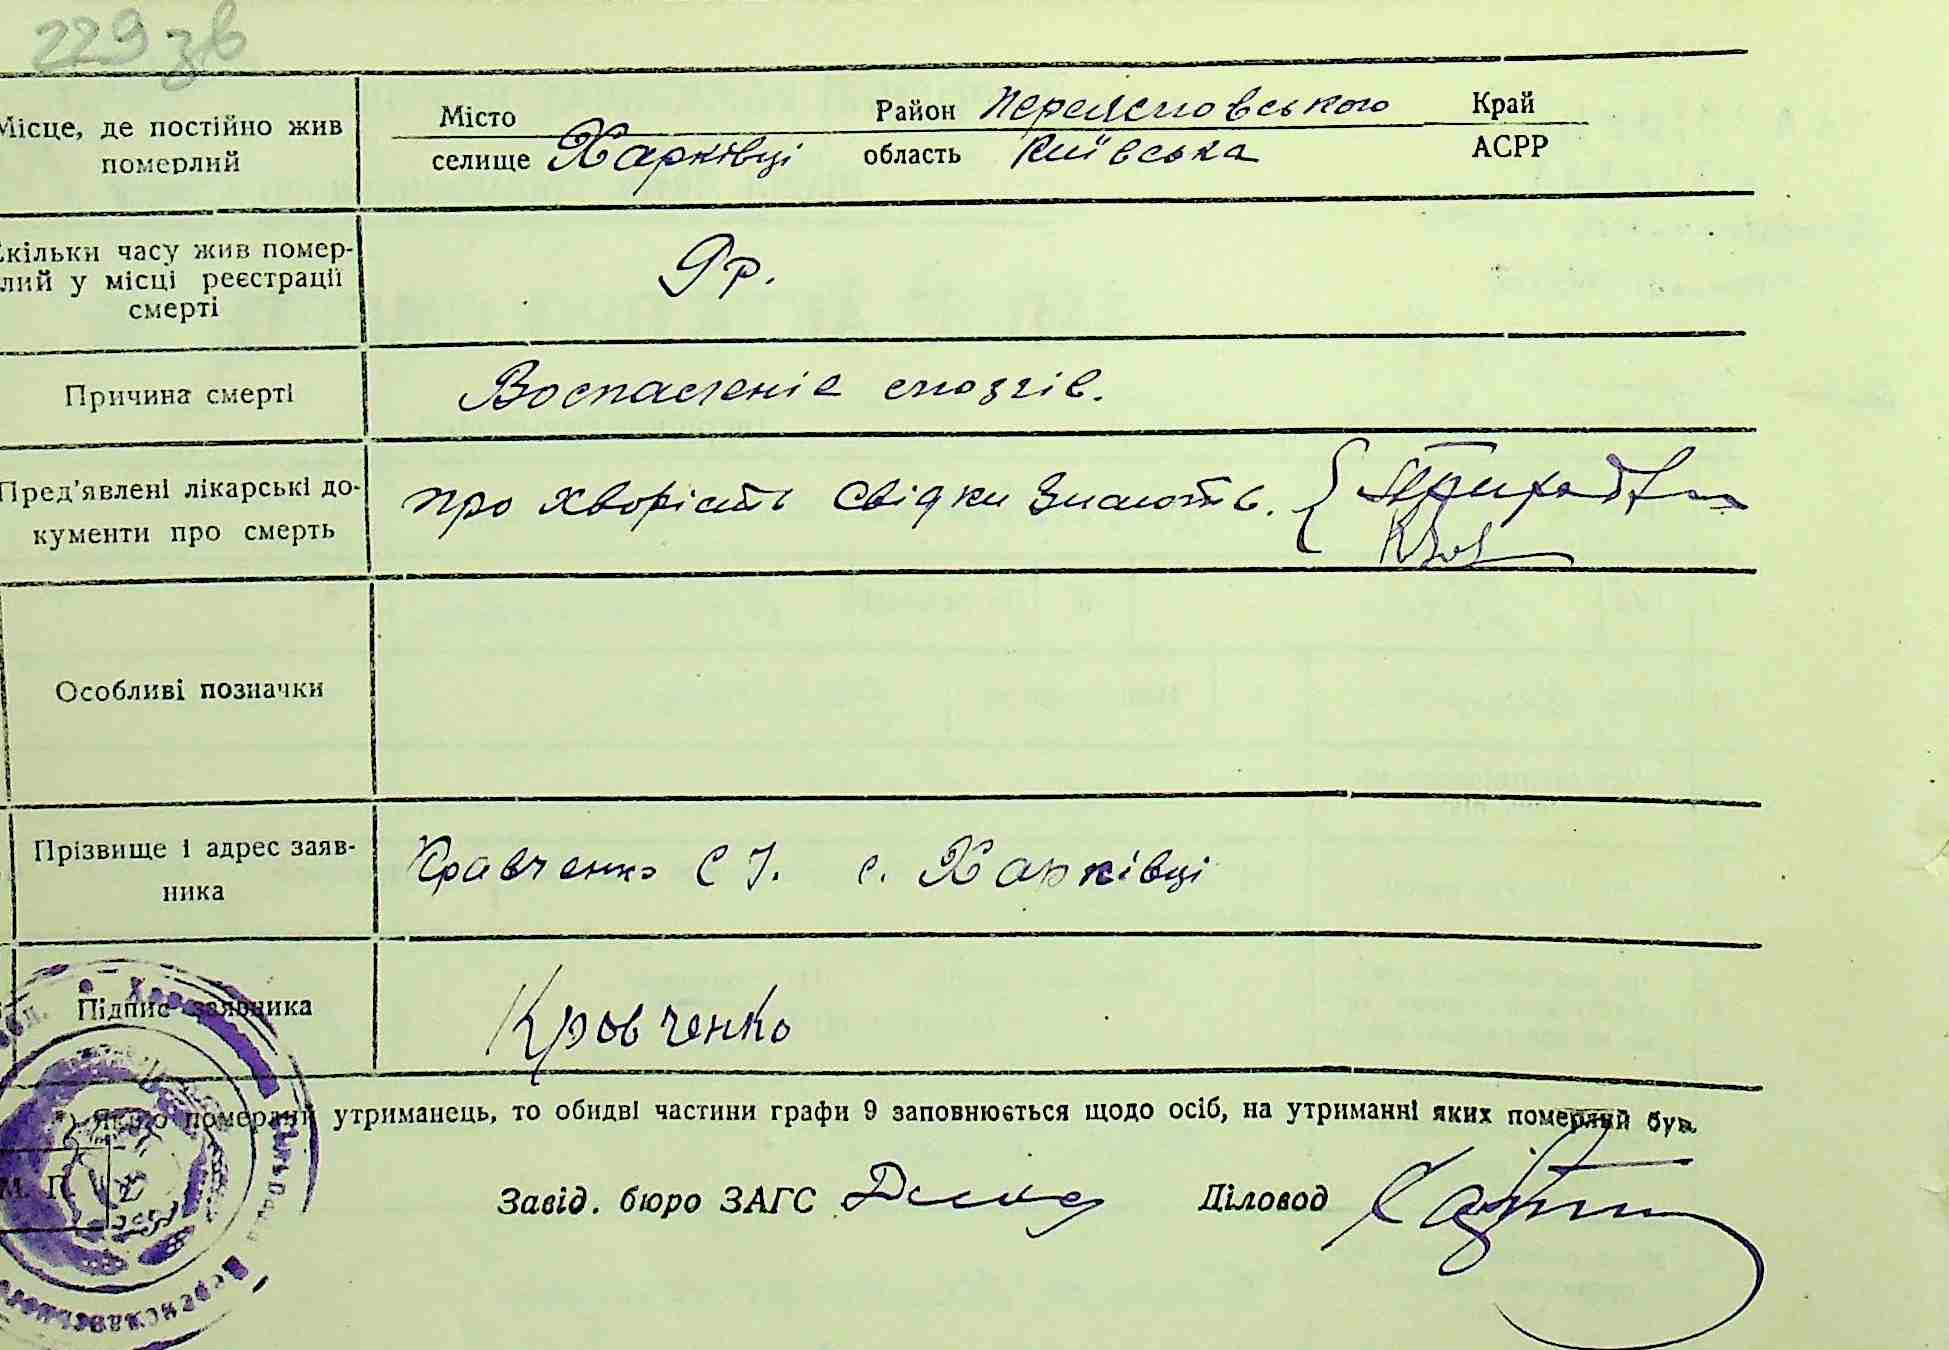 229 зв
Місце, де постійно жив
померлий
Місто Район Переяславського Край
селище Харківці область Київська АСРР
Скільки часу жив помер-
лий у місці реєстрації
смерті
9 р.
Причина смерті
Воспаленіе мозгів.
Пред'явлені лікарські до-
кументи про смерть
про хворість свідки знають.
Особливі позначки
Прізвище і адрес заяв-
ника
Кравченко С І. с. Харківці
Підпис заявника
Кровченко
*) Якщо померлий утриманець, то обидві частини графи 9 заповнюється щодо осіб, на утриманні яких померлий був.
М. П.
Завід. бюро ЗАГС Діловод